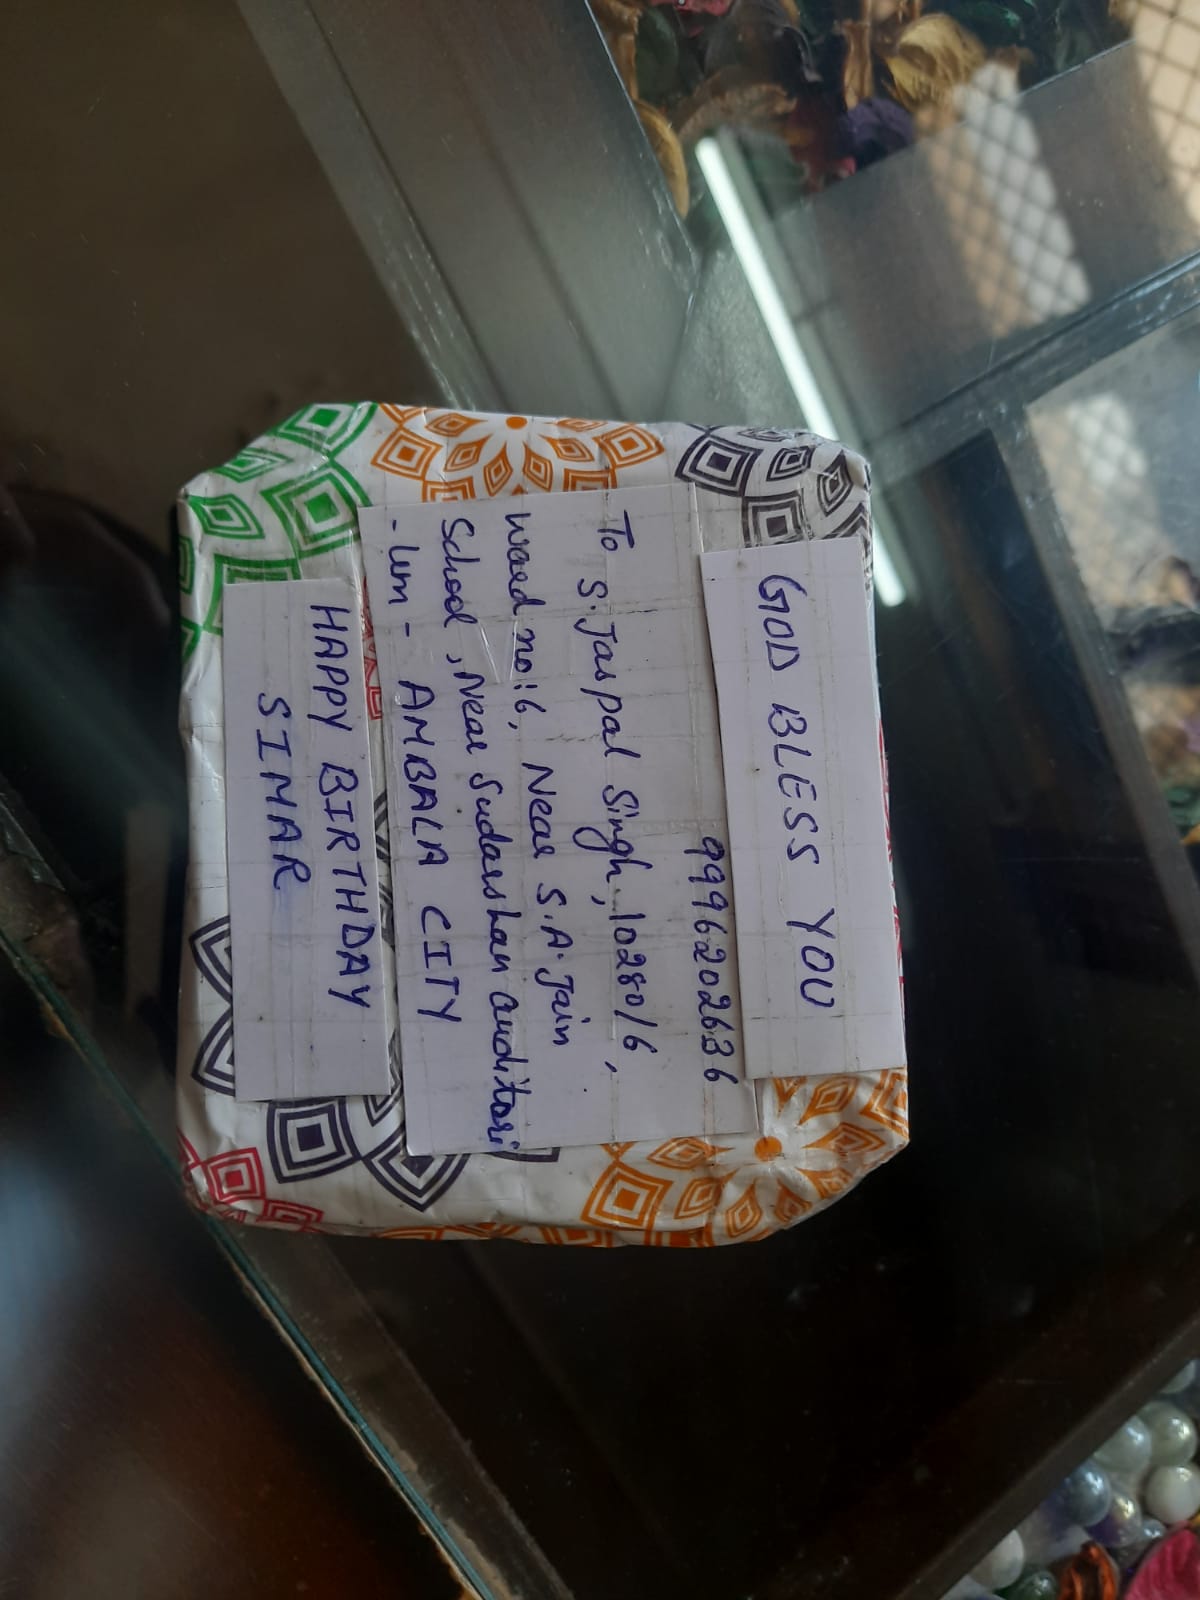 GOD BLESS YOU
9996202636
To S. Jaspal Singh, 10280/6,
Ward no:6, Near S.A. Jain
School, Near Sudarshan auditori
-um - AMBALA CITY
HAPPY BIRTHDAY
SIMAR